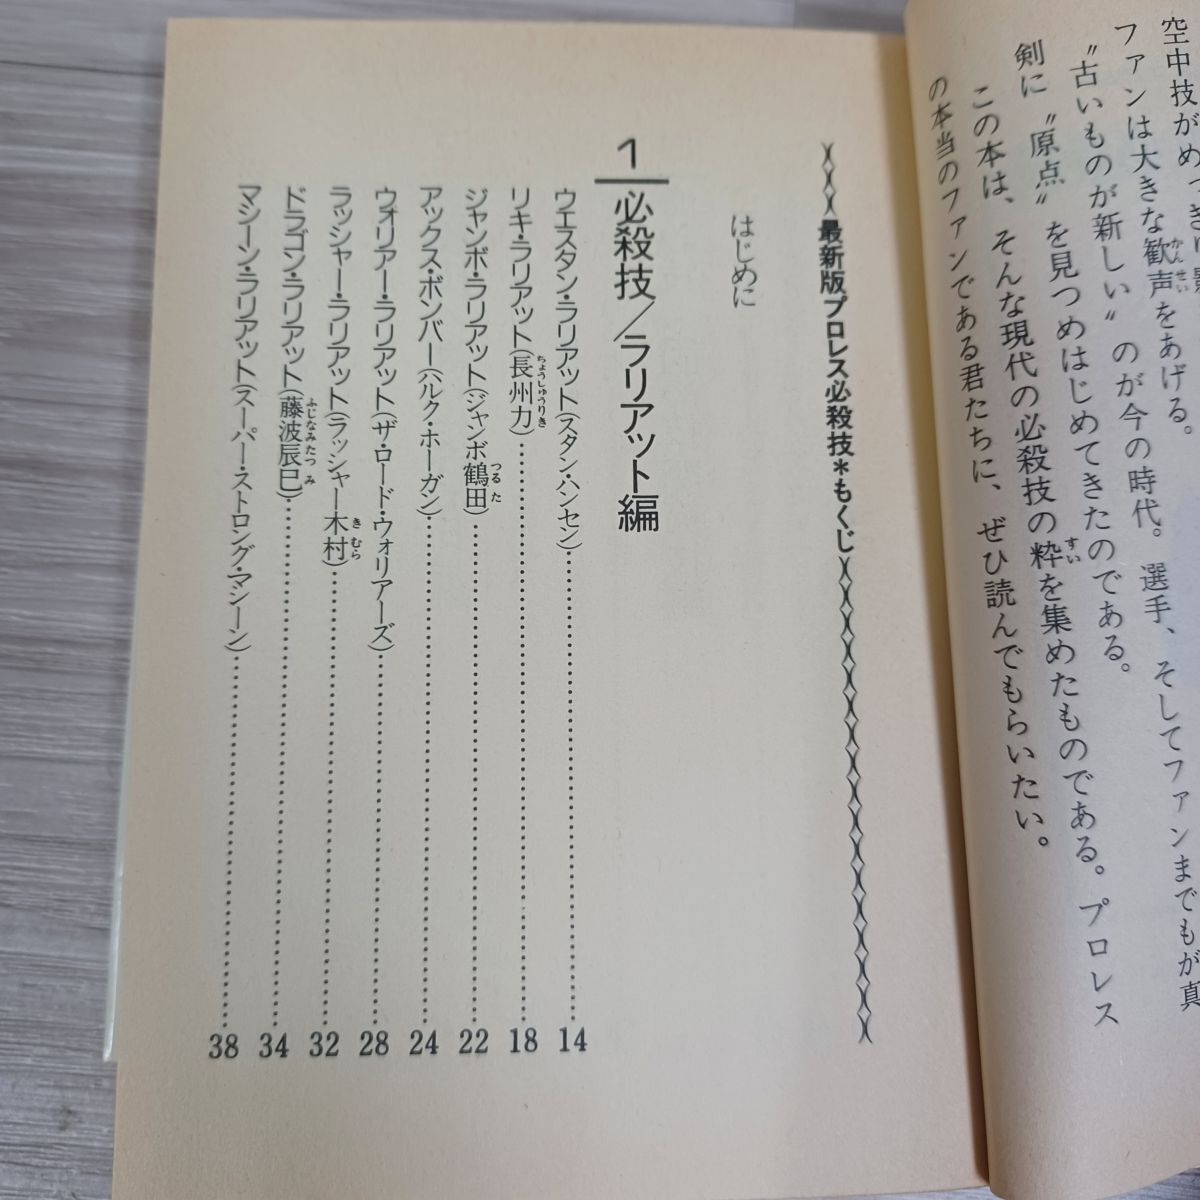 空中技が
ファンは大きな歓声をあげる。
〝古いものが新しい〟のが今の時代。選手、そしてファンまでもが真
剣に〝原点〟を見つめはじめてきたのである。
この本は、そんな現代の必殺技の粋を集めたものである。プロレス
の本当のファンである君たちに、ぜひ読んでもらいたい。
最新版プロレス必殺技*もくじ
はじめに
1 必殺技/ラリアット編
ウエスタン・ラリアット(スタン・ハンセン)……14
リキ・ラリアット(長州力)……18
ジャンボ・ラリアット(ジャンボ鶴田)……22
アックス・ボンバー(ハルク・ホーガン)……24
ウォリアー・ラリアット(ザ・ロード・ウォリアーズ)……28
ラッシャー・ラリアット(ラッシャー木村)……32
ドラゴン・ラリアット(藤波辰巳)……34
マシーン・ラリアット(スーパー・ストロング・マシーン)……38